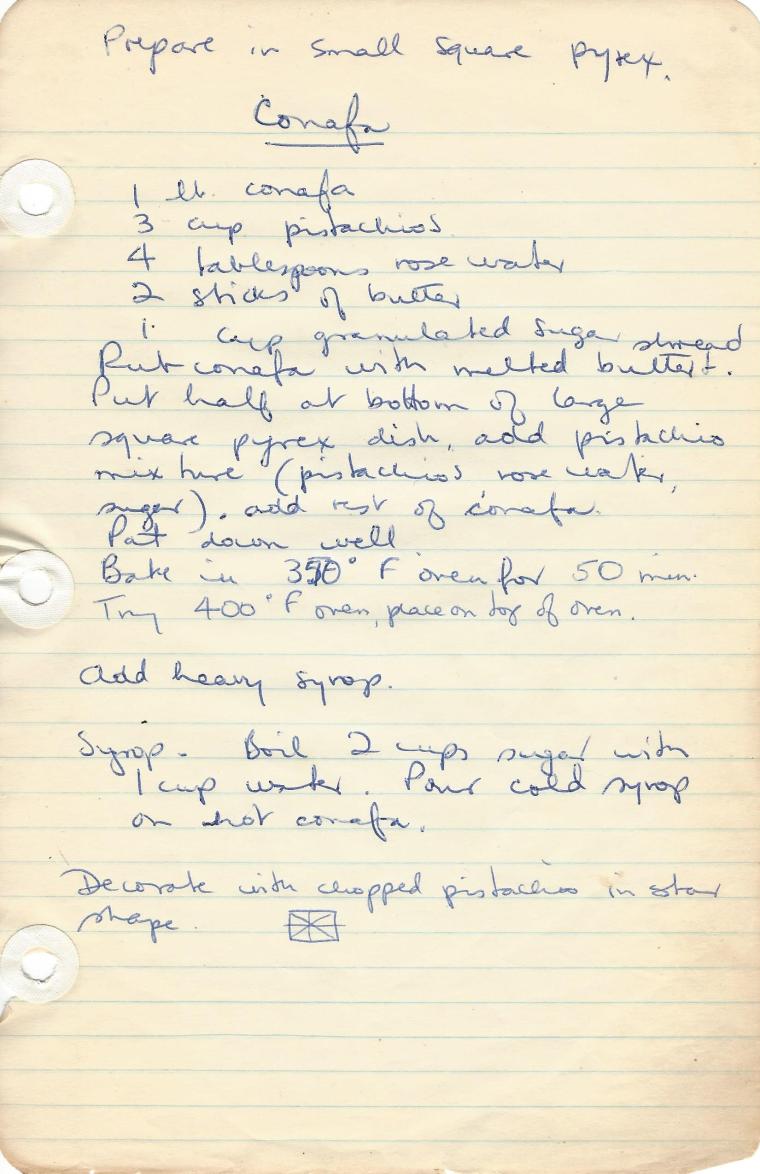 Prepare in small square pyrex.
Conafa
1 lb. conafa
3 cup pistachios
4 tablespoons rose water
2 sticks of butter
1. cup granulated sugar
shread
Put conafa with melted butter.
Put half at bottom of large
square pyrex dish, add pistachio
mixture (pistachios rose water,
sugar). add rest of conafa.
Pat down well
Bake in 350° F oven for 50 min.
Try 400° F oven, place on top of oven.
Add heavy syrop.
Syrop - Boil 2 cups sugar with
1 cup water. Pour cold syrop
on hot conafa.
Decorate with chopped pistachios in star
shape.